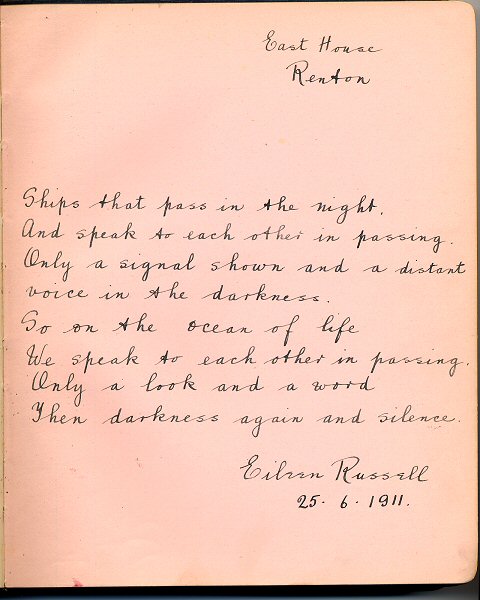 East House
Renton
Ships that pass in the night,
And speak to each other in passing.
Only a signal shown and a distant
voice in the darkness.
So on the ocean of life
We speak to each other in passing.
Only a look and a word
Then darkness again and silence.
Eileen Russell
25. 6. 1911.